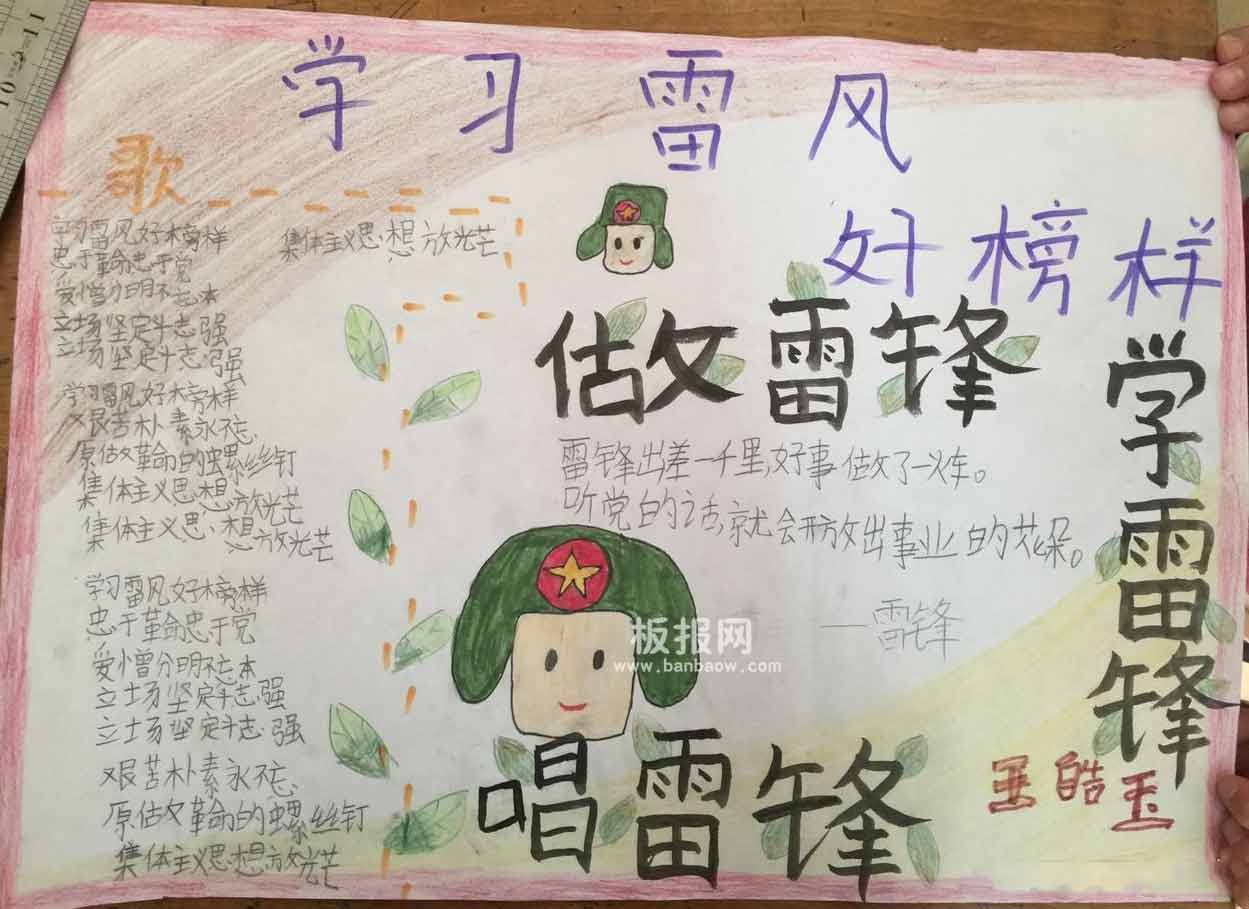 学习雷风
好榜样
歌
学习雷风好榜样
忠于革命忠于党
爱憎分明不忘本
立场坚定斗志强
立场坚定斗志强
学习雷风好榜样
艰苦朴素永不忘
原做革命的螺丝钉
集体主义思想放光芒
集体主义思想放光芒
学习雷风好榜样
忠于革命忠于党
爱憎分明不忘本
立场坚定斗志强
立场坚定斗志强
艰苦朴素永不忘
原做革命的螺丝钉
集体主义思想放光芒
集体主义思想放光芒
做雷锋
雷锋出差一千里,好事做了一火车。
听党的话,就会开放出事业的花朵。
——雷锋
学雷锋
唱雷锋
板报网
www.banbaow.com
皓玉
1
2
3
01